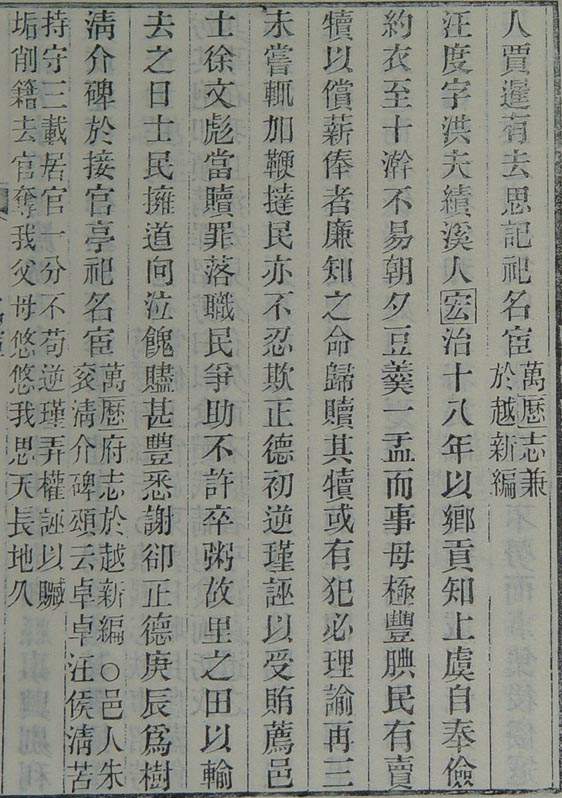 人賈暹有去思記祀名宦
萬歴志兼
於越新編
汪度字洪夫績溪人宏治十八年以鄉貢知上虞自奉儉
約衣至十澣不易朝夕豆羹一盂而事母極豐腆民有賣
犢以償薪俸者廉知之命歸贖其犢或有犯必理諭再三
未嘗輒加鞭撻民亦不忍欺正德初逆瑾誣以受賄薦邑
士徐文彪當贖罪落職民爭助不許卒粥故里之田以輸
去之日士民擁道向泣餽贐甚豐悉謝卻正德庚辰爲樹
清介碑於接官亭祀名宦
萬歴府志於越新編○邑人朱
衮清介碑頌云卓卓汪侯清苦
持守三載居官一分不苟逆瑾弄權誣以贓
垢削籍去官奪我父母悠悠我思天長地久